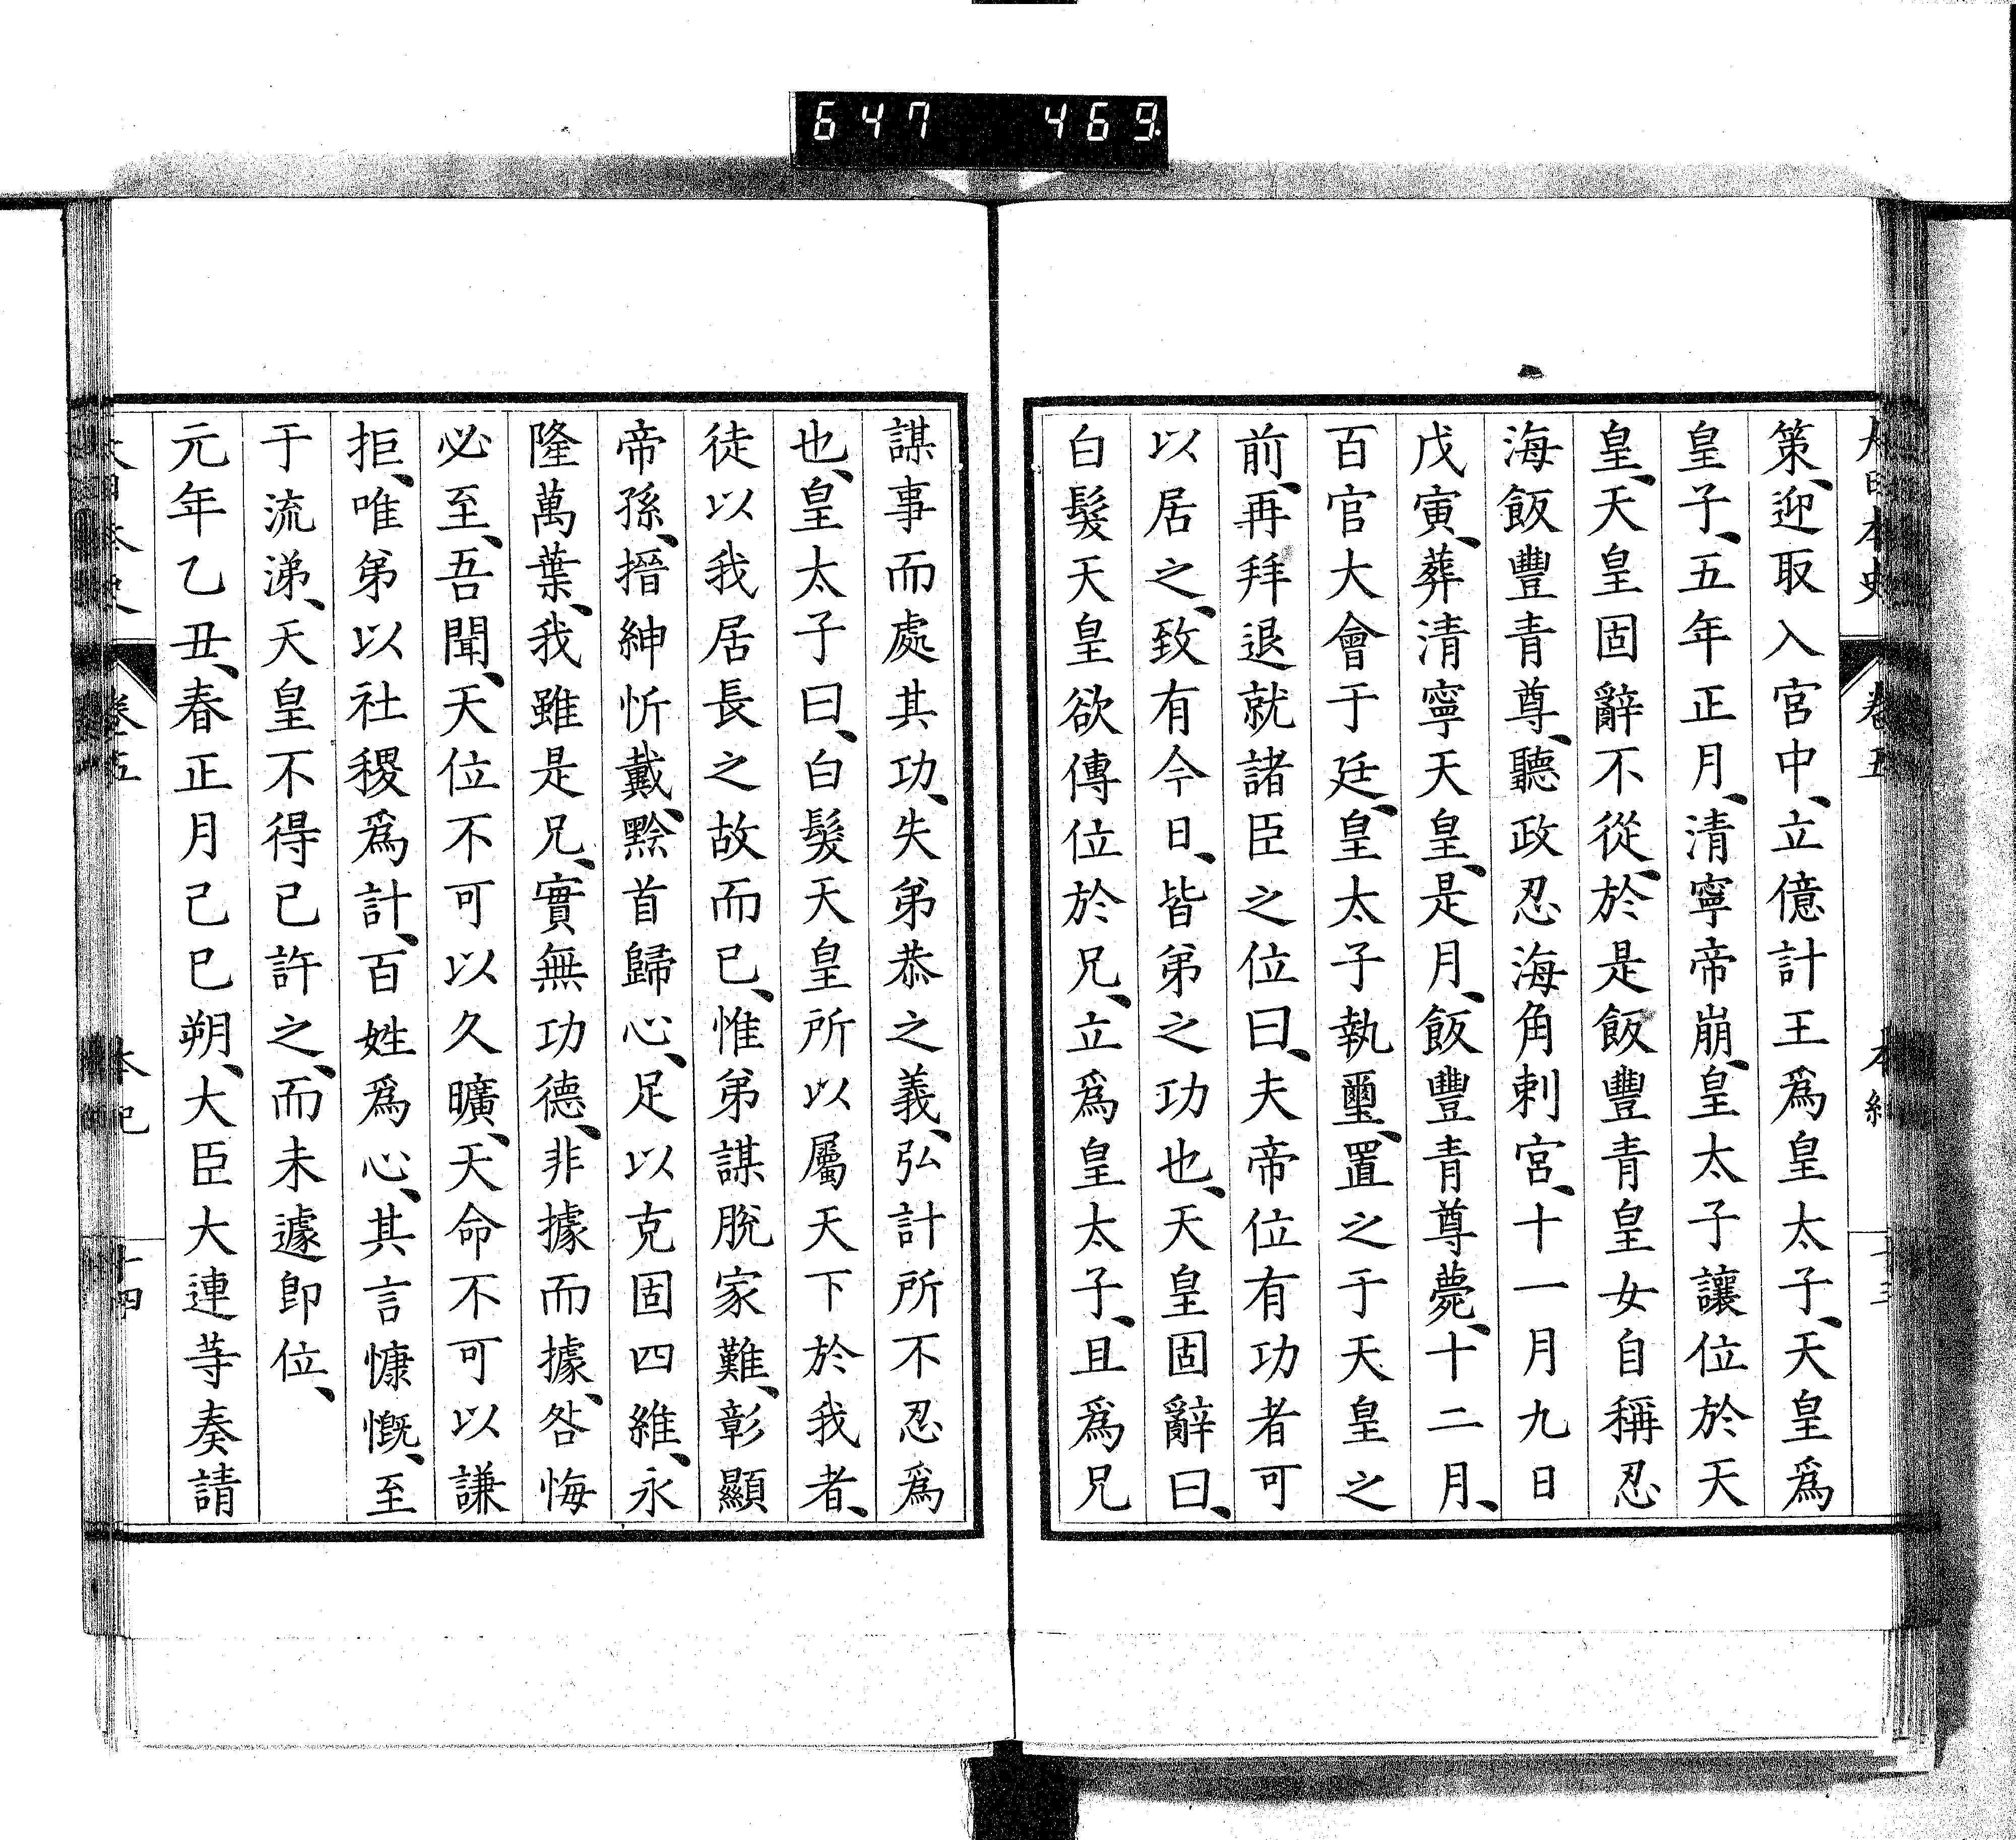 647 469
大日本史 卷五 本紀 十三
策、迎取入宮中、立億計王爲皇太子、天皇爲
皇子、五年正月、清寧帝崩、皇太子讓位於天
皇、天皇固辭不從、於是飯豐青皇女自稱忍
海飯豐青尊、聽政忍海角刺宮、十一月九日
戊寅、葬清寧天皇、是月、飯豐青尊薨、十二月、
百官大會于廷、皇太子執璽、置之于天皇之
前、再拜退就諸臣之位曰、夫帝位有功者可
以居之、致有今日、皆弟之功也、天皇固辭曰、
白髮天皇欲傳位於兄、立爲皇太子、且爲兄
謀事而處其功、失弟恭之義、弘計所不忍爲
也、皇太子曰、白髮天皇所以屬天下於我者、
徒以我居長之故而已、惟弟謀脫家難、彰顯
帝孫、搢紳忻戴、黔首歸心、足以克固四維、永
隆萬葉、我雖是兄、實無功德、非據而據、咎悔
必至、吾聞、天位不可以久曠、天命不可以謙
拒、唯弟以社稷爲計、百姓爲心、其言慷慨、至
于流涕、天皇不得已許之、而未遽即位、
元年乙丑、春正月己巳朔、大臣大連等奏請
大日本史 卷五 本紀 十四